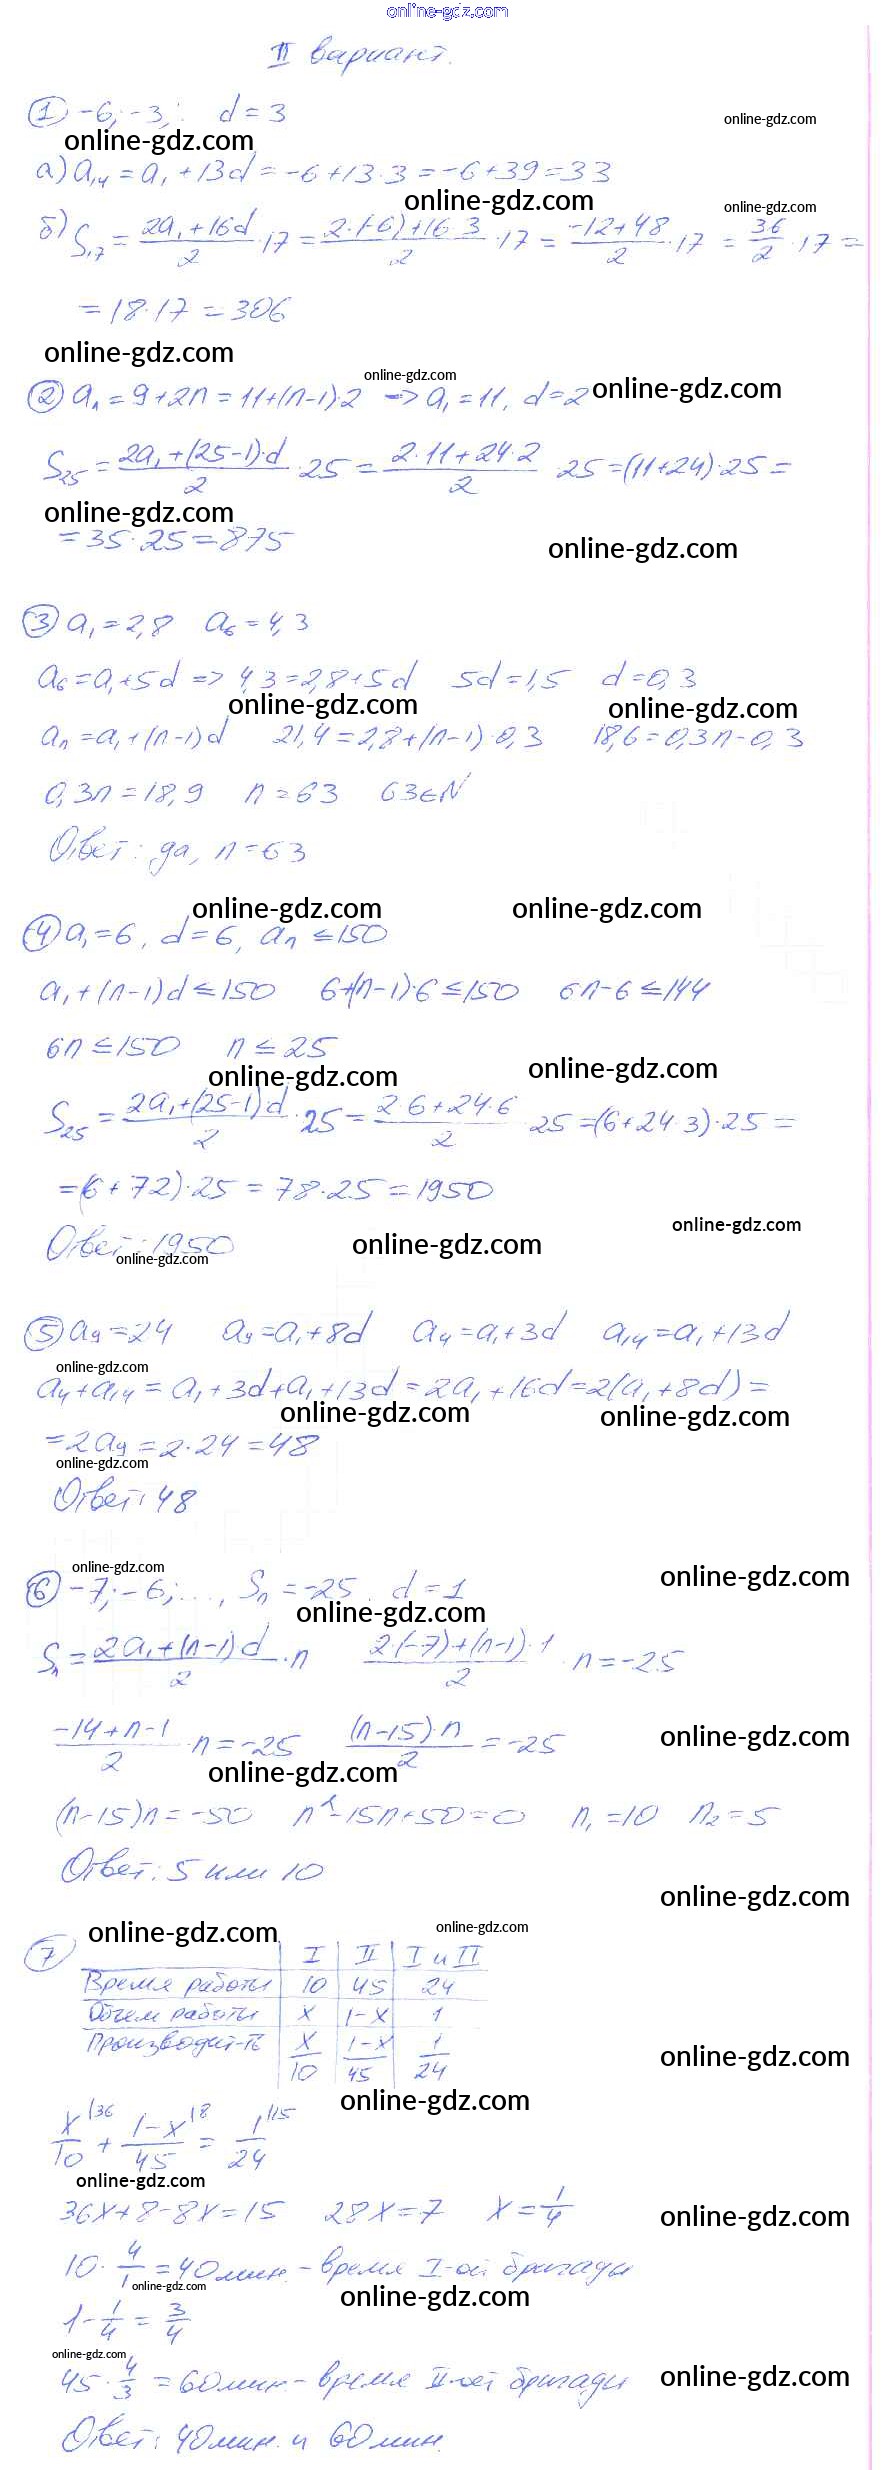 online-gdz.com
II вариант.
① -6; -3; ... d = 3
online-gdz.com
online-gdz.com
а) a₁₄ = a₁ + 13d = -6 + 13·3 = -6 + 39 = 33
online-gdz.com
online-gdz.com
б) S₁₇ = (2a₁ + 16d)/2 · 17 = (2·(-6) + 16·3)/2 · 17 = (-12 + 48)/2 · 17 = 36/2 · 17 =
= 18·17 = 306
online-gdz.com
online-gdz.com
② aₙ = 9 + 2n = 11 + (n-1)·2 => a₁ = 11, d = 2
online-gdz.com
S₂₅ = (2a₁ + (25-1)·d)/2 · 25 = (2·11 + 24·2)/2 · 25 = (11 + 24)·25 =
online-gdz.com
= 35·25 = 875
online-gdz.com
③ a₁ = 2,8 a₆ = 4,3
a₆ = a₁ + 5d => 4,3 = 2,8 + 5d 5d = 1,5 d = 0,3
online-gdz.com
online-gdz.com
aₙ = a₁ + (n-1)d 21,4 = 2,8 + (n-1)·0,3 18,6 = 0,3n - 0,3
0,3n = 18,9 n = 63 63∈N
Ответ: да, n = 63
online-gdz.com
online-gdz.com
④ a₁ = 6, d = 6, aₙ ≤ 150
a₁ + (n-1)d ≤ 150 6 + (n-1)·6 ≤ 150 6n - 6 ≤ 144
6n ≤ 150 n ≤ 25
online-gdz.com
online-gdz.com
S₂₅ = (2a₁ + (25-1)d)/2 · 25 = (2·6 + 24·6)/2 · 25 = (6 + 24·3)·25 =
= (6 + 72)·25 = 78·25 = 1950
online-gdz.com
Ответ: 1950
online-gdz.com
online-gdz.com
⑤ a₉ = 24 a₉ = a₁ + 8d a₄ = a₁ + 3d a₁₄ = a₁ + 13d
online-gdz.com
a₄ + a₁₄ = a₁ + 3d + a₁ + 13d = 2a₁ + 16d = 2(a₁ + 8d) =
online-gdz.com
online-gdz.com
= 2a₉ = 2·24 = 48
online-gdz.com
Ответ: 48
online-gdz.com
online-gdz.com
⑥ -7; -6; ..., Sₙ = -25, d = 1
online-gdz.com
Sₙ = (2a₁ + (n-1)d)/2 · n (2·(-7) + (n-1)·1)/2 · n = -25
(-14 + n - 1)/2 · n = -25 ((n-15)·n)/2 = -25
online-gdz.com
online-gdz.com
(n-15)n = -50 n² - 15n + 50 = 0 n₁ = 10 n₂ = 5
Ответ: 5 или 10
online-gdz.com
online-gdz.com
online-gdz.com
⑦ I II I и II
Время работы 10 45 24
Объем работы x 1-x 1
Производит-ть x/10 (1-x)/45 1/24
online-gdz.com
online-gdz.com
x/10 |36 + (1-x)/45 |8 = 1/24 |15
online-gdz.com
36x + 8 - 8x = 15 28x = 7 x = 1/4
online-gdz.com
10 · 4/1 = 40 мин. - время I-ой бригады
online-gdz.com
online-gdz.com
1 - 1/4 = 3/4
online-gdz.com
45 · 4/3 = 60 мин. - время II-ой бригады
online-gdz.com
Ответ: 40 мин. и 60 мин.